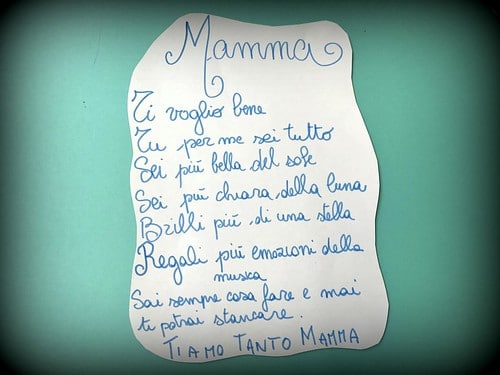 Mamma
Ti voglio bene
Tu per me sei tutto
Sei più bella del sole
Sei più chiara della luna
Brilli più di una stella
Regali più emozioni della
musica
Sai sempre cosa fare e mai
ti potrai stancare.
TI AMO TANTO MAMMA